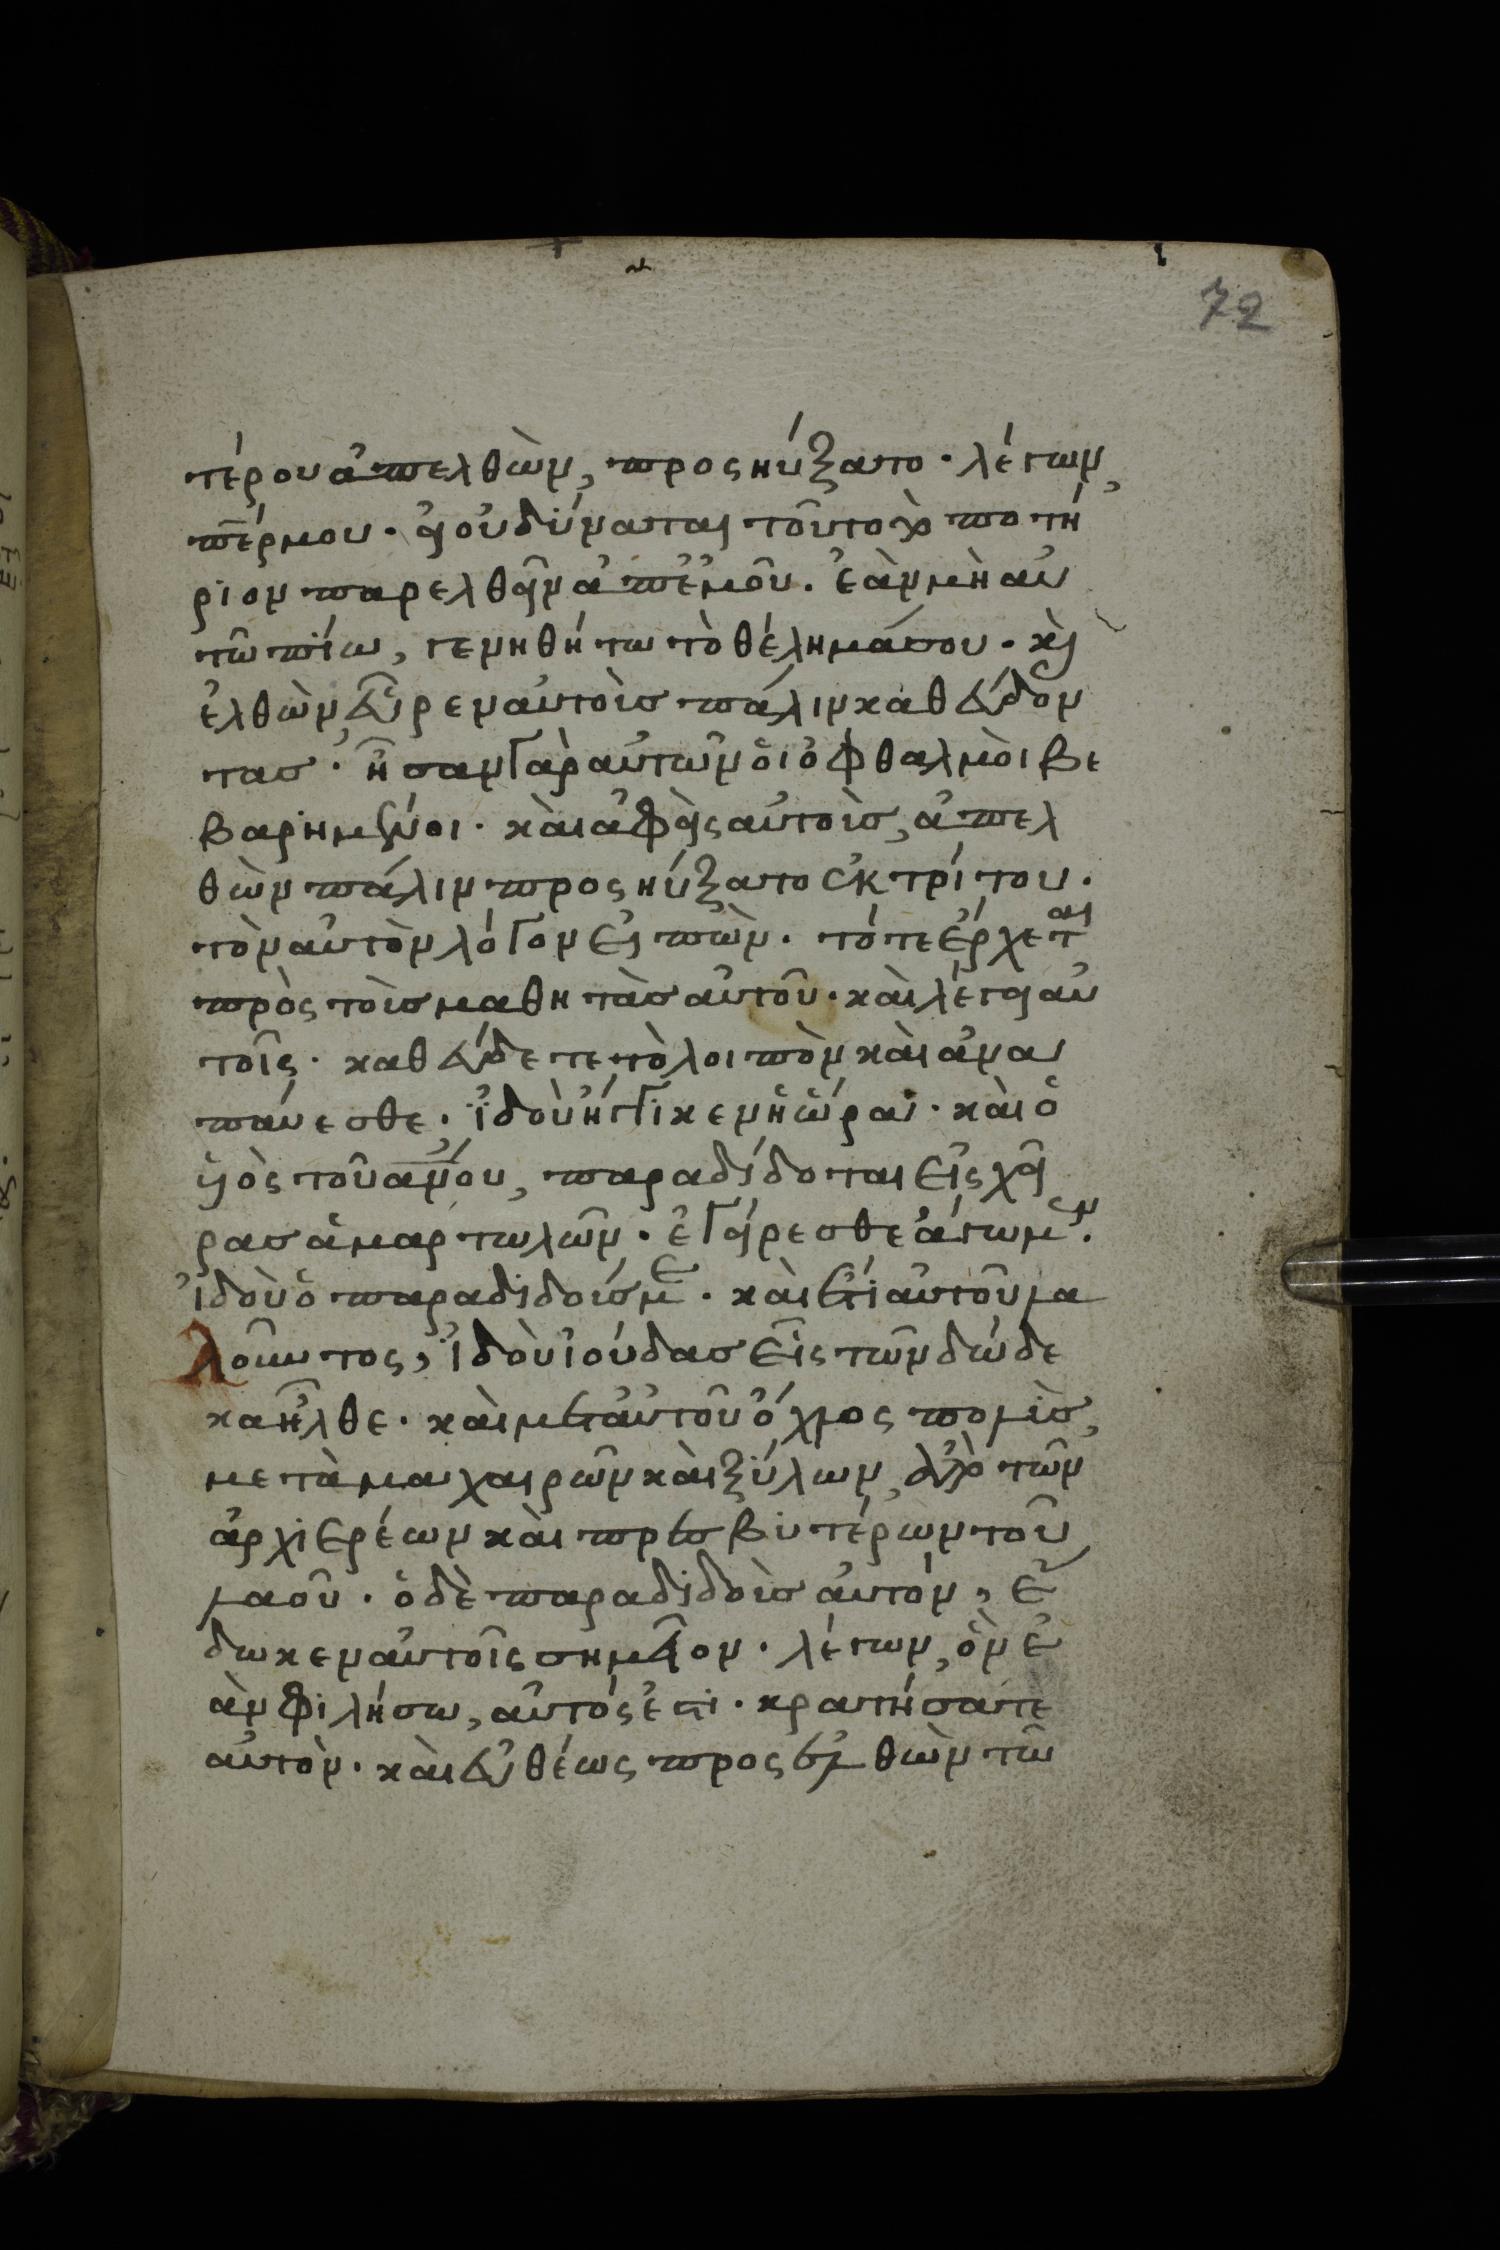 72
τέρου ἀπελθὼν, προς ηύξατο · λέγων,
π̅ε̅ρ μου · εἰ οὐ δύναται τοῦτο τὸ ποτή
ριον παρελθεῖν ἀπ' ἐμοῦ. ἐὰν μὴ αυ
τῶ πίω, γενηθήτω τὸ θέλημά σου · κὶ
ἐλθὼν, εὗρεν αὐτοὺσ πάλιν καθεύδον
τασ · ἦσαν γὰρ αὐτῶν ὁι ὀφθαλμὸι βε
βαρημένοι · κὰι ἀφεὶς αὐτοὺσ, ἀπελ
θὼν πάλιν προς ηύξατο ἐκ τρίτου.
τὸν αὐτὸν λόγον εἰπὼν · τότε ἔρχετ(αι)
πρὸς τοὺσ μαθητὰσ αὐτοῦ · κὰι λέγει αὐ
τοῖς · καθεύδετε τὸ λοιπὸν κὰι ἀνα
πάυεσθε · ἰ̈δοὺ ἤγγικεν ἡ ὥρα · κὰι ὁ
ὑιὸς τοῦ α̅ν̅ου, παραδίδοται εἰς χεῖ
ρασ ἁμαρτωλῶν · ἐγείρεσθε ἄγωμεν.
ἰδοὺ ὁ παραδιδούσ με · κὰι ἔτι αὐτοῦ λα
λοῦντος, ἰδοὺ ἰούδασ εἷς τῶν δώδε
κα ἦλθε · κὰι μετ' αὐτοῦ ὄχλος πολὺσ,
μετὰ μαχαιρῶν κὰι ξύλων, ἀπὸ τῶν
ἀρχιερέων κὰι πρεσβυτέρων τοῦ
λαοῦ · ὁ δὲ παραδιδοὺσ αὐτόν, ἔ
δωκεν αὐτοῖς σημεῖον · λέγων, ὃν ἐ
ὰν φιλήσω, αὐτός ἐστι · κρατήσατε
αὐτὸν · κὰι εὐθέως προς ελθὼν τῶ